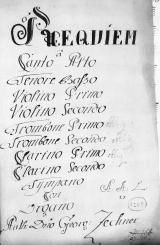 REQUIEM
Canto Alto
Tenore Basso
Violino Primo
Violino Secondo
Trombone Primo
Trombone Secondo
Clarino Primo
Clarino Secondo
Tympano
Con
Organo
Georg Zechner